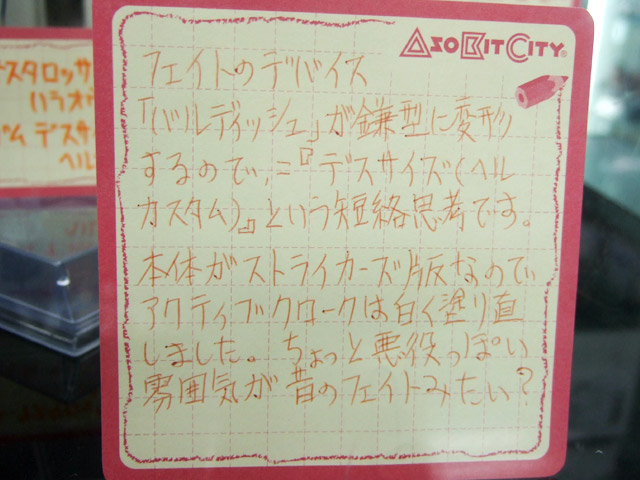 ASOBITCITY®
フェイトのデバイス
「バルディッシュ」が鎌型に変形
するので、=『デスサイズ(ヘル
カスタム)』という短絡思考です。
本体がストライカーズ版なので、
アクティブクロークは白く塗り直
しました。ちょっと悪役っぽい
雰囲気が昔のフェイトみたい?
スタロッサ
ハラオ
ム デスサ
ヘル